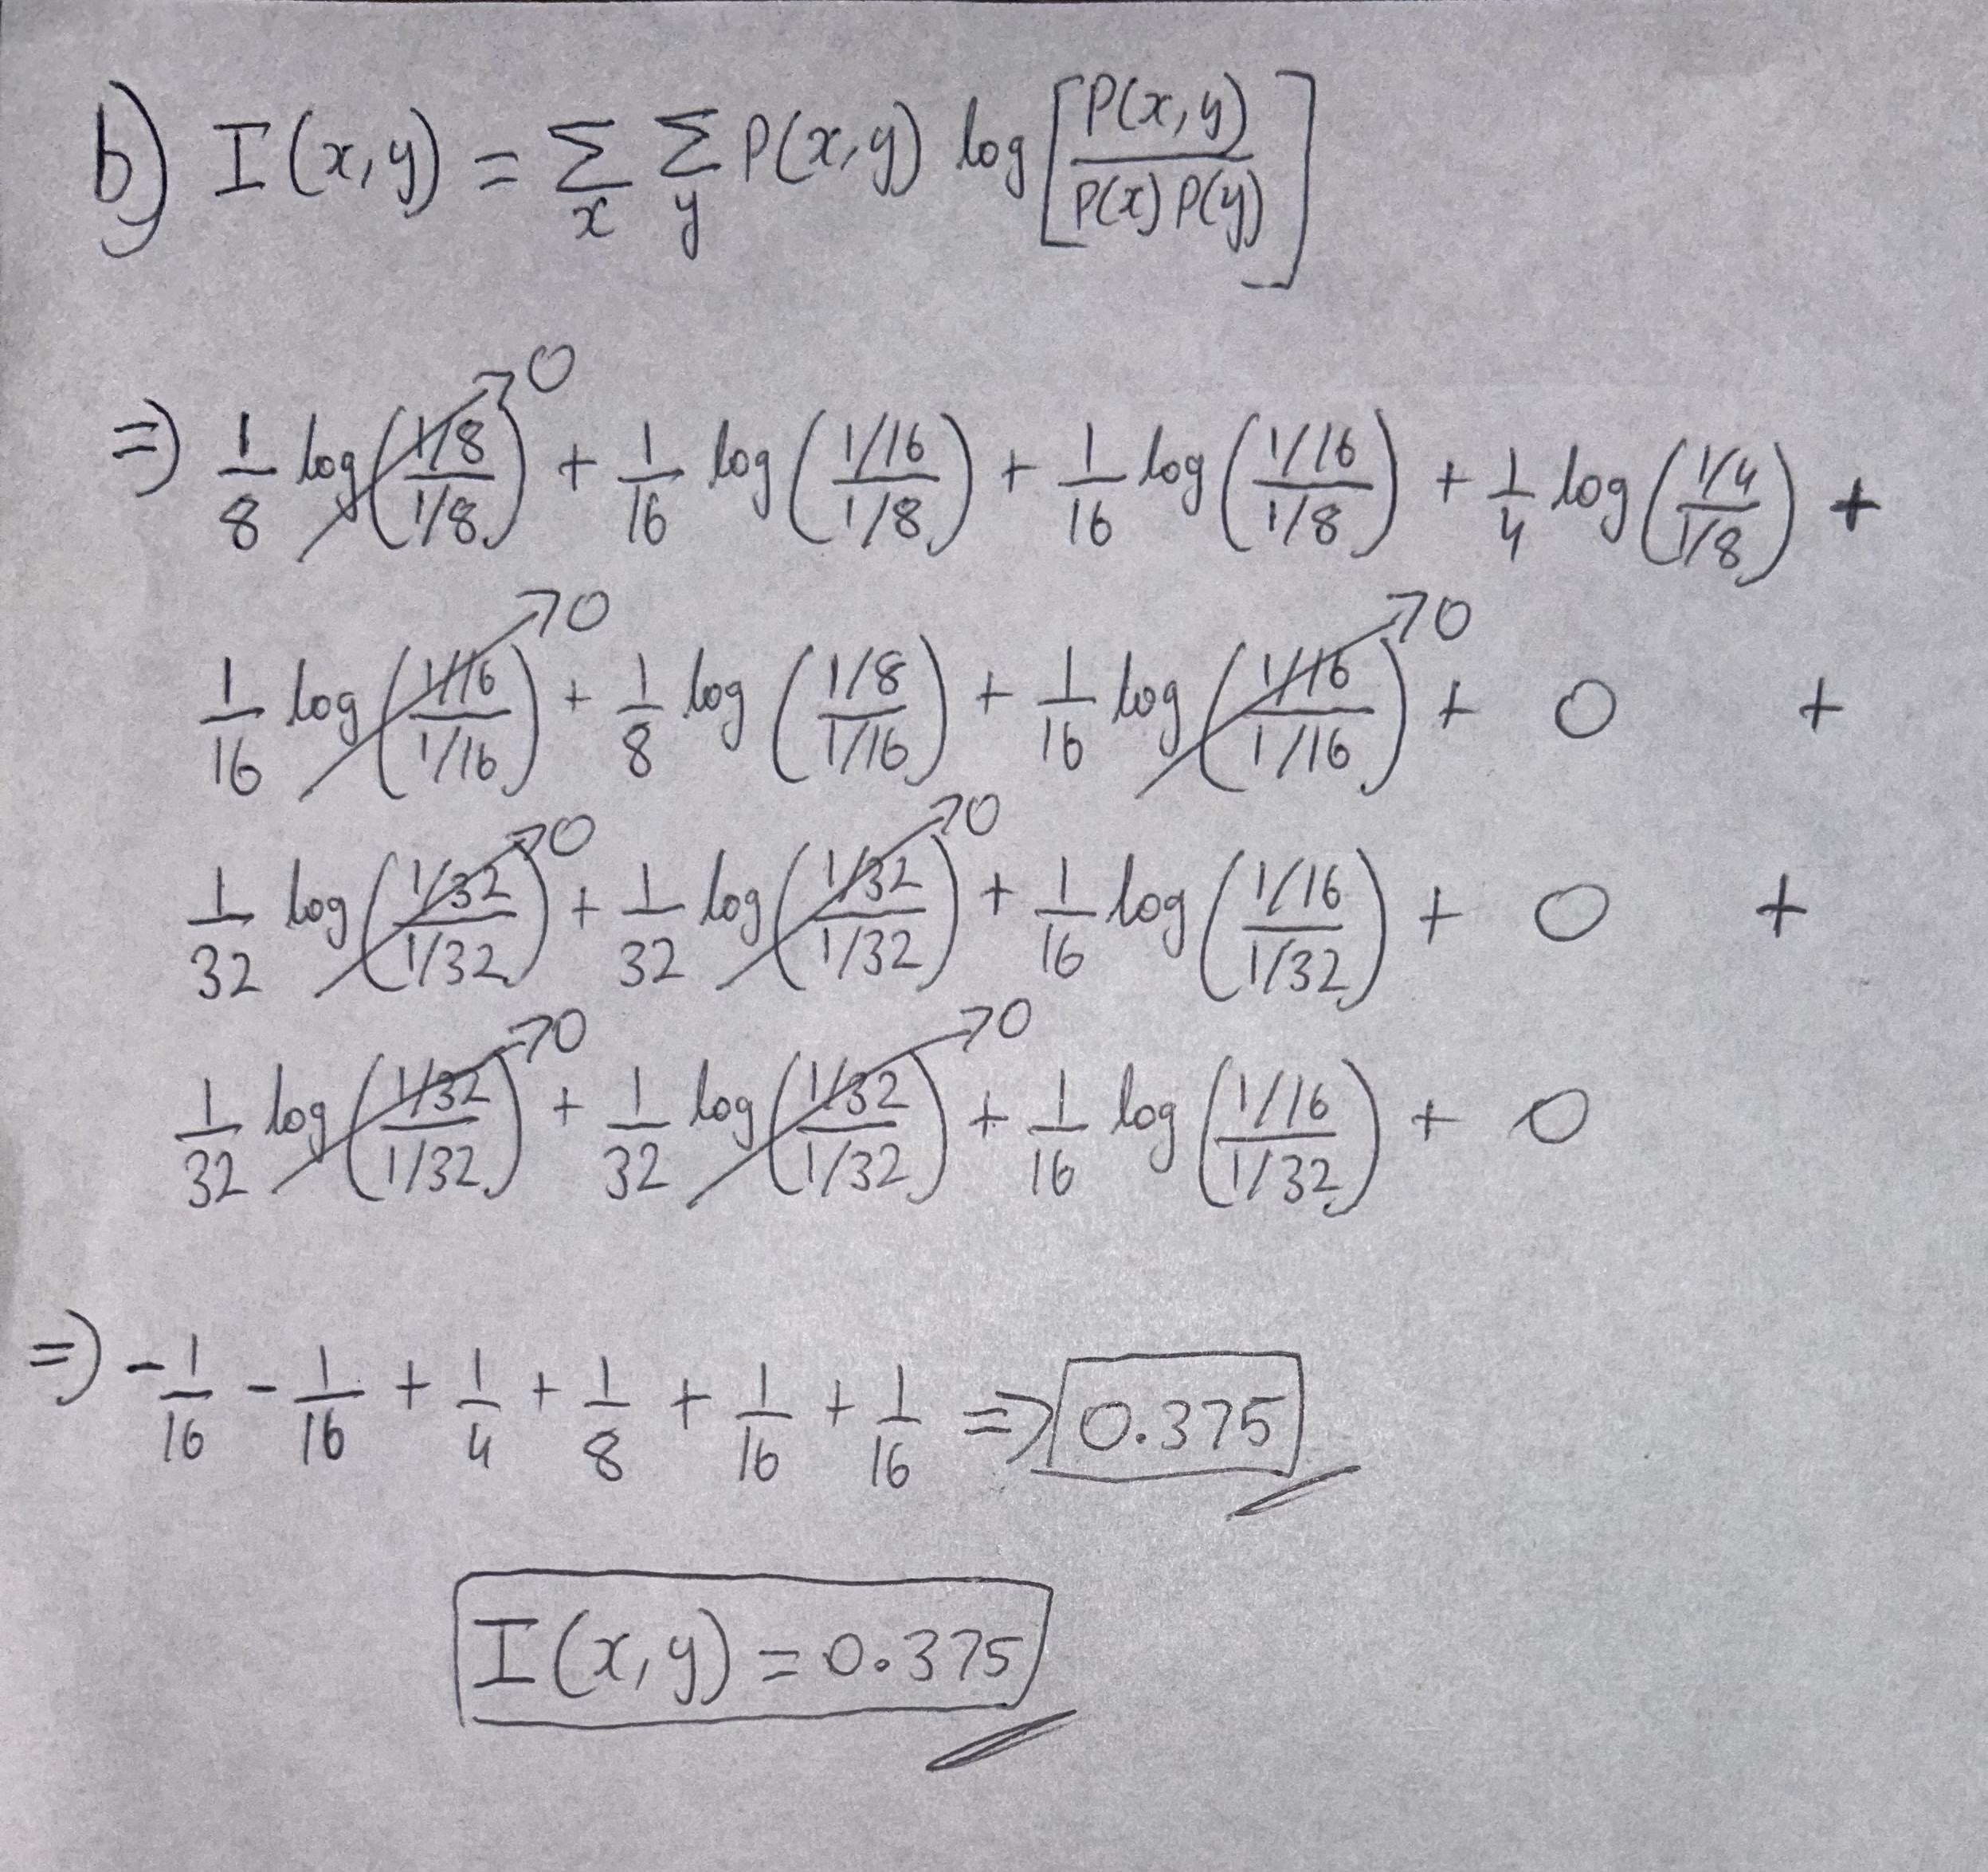 b) I(x,y) = Σ_x Σ_y P(x,y) log[P(x,y) / P(x)P(y)]
⇒ 1/8 log((1/8)/(1/8)) →0 + 1/16 log((1/16)/(1/8)) + 1/16 log((1/16)/(1/8)) + 1/4 log((1/4)/(1/8)) +
1/16 log((1/16)/(1/16)) →0 + 1/8 log((1/8)/(1/16)) + 1/16 log((1/16)/(1/16)) →0 + 0 +
1/32 log((1/32)/(1/32)) →0 + 1/32 log((1/32)/(1/32)) →0 + 1/16 log((1/16)/(1/32)) + 0 +
1/32 log((1/32)/(1/32)) →0 + 1/32 log((1/32)/(1/32)) →0 + 1/16 log((1/16)/(1/32)) + 0
⇒ -1/16 - 1/16 + 1/4 + 1/8 + 1/16 + 1/16 ⇒ 0.375
I(x,y) = 0.375